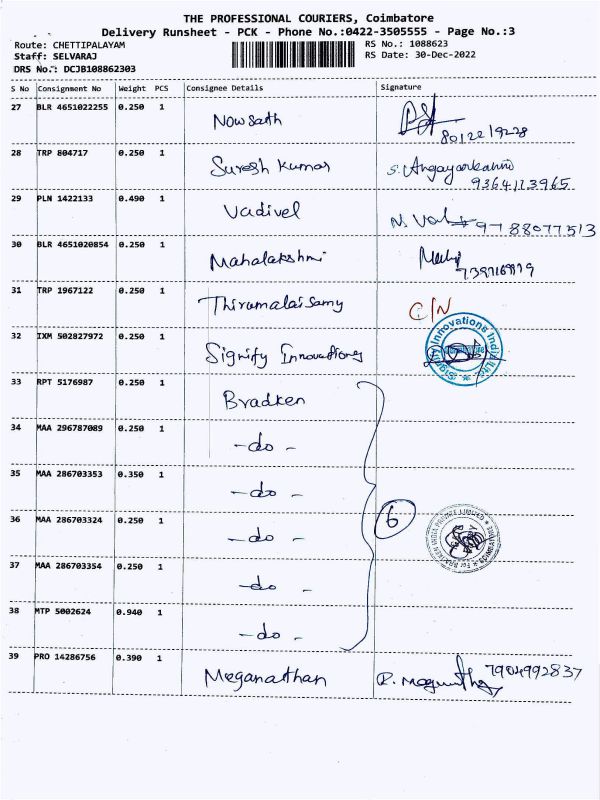 THE PROFESSIONAL COURIERS, Coimbatore
Delivery Runsheet - PCK - Phone No.:0422-3505555 - Page No.:3
Route: CHETTIPALAYAM RS No.: 1088623
Staff: SELVARAJ RS Date: 30-Dec-2022
DRS No.: DCJB108862303
S No Consignment No Weight PCS Consignee Details Signature
27 BLR 4651022255 0.250 1 Nowsath
28 TRP 804717 0.250 1 Suresh Kumar S. Angayarkanni
9364113965
29 PLN 1422133 0.490 1 Vadivel 9788077513
30 BLR 4651020854 0.250 1 Mahalakshmi
31 TRP 1967122 0.250 1 Thirumalaisamy C/N
32 IXM 502827972 0.250 1 Signify Innovations Signify Innovations India Ltd.
33 RPT 5176987 0.250 1 Bradken
34 MAA 296787089 0.250 1 -do-
35 MAA 286703353 0.350 1 -do-
36 MAA 286703324 0.250 1 -do- 6
37 MAA 286703354 0.250 1 -do-
38 MTP 5002624 0.940 1 -do-
39 PRO 14286756 0.390 1 Meganathan 7904992837